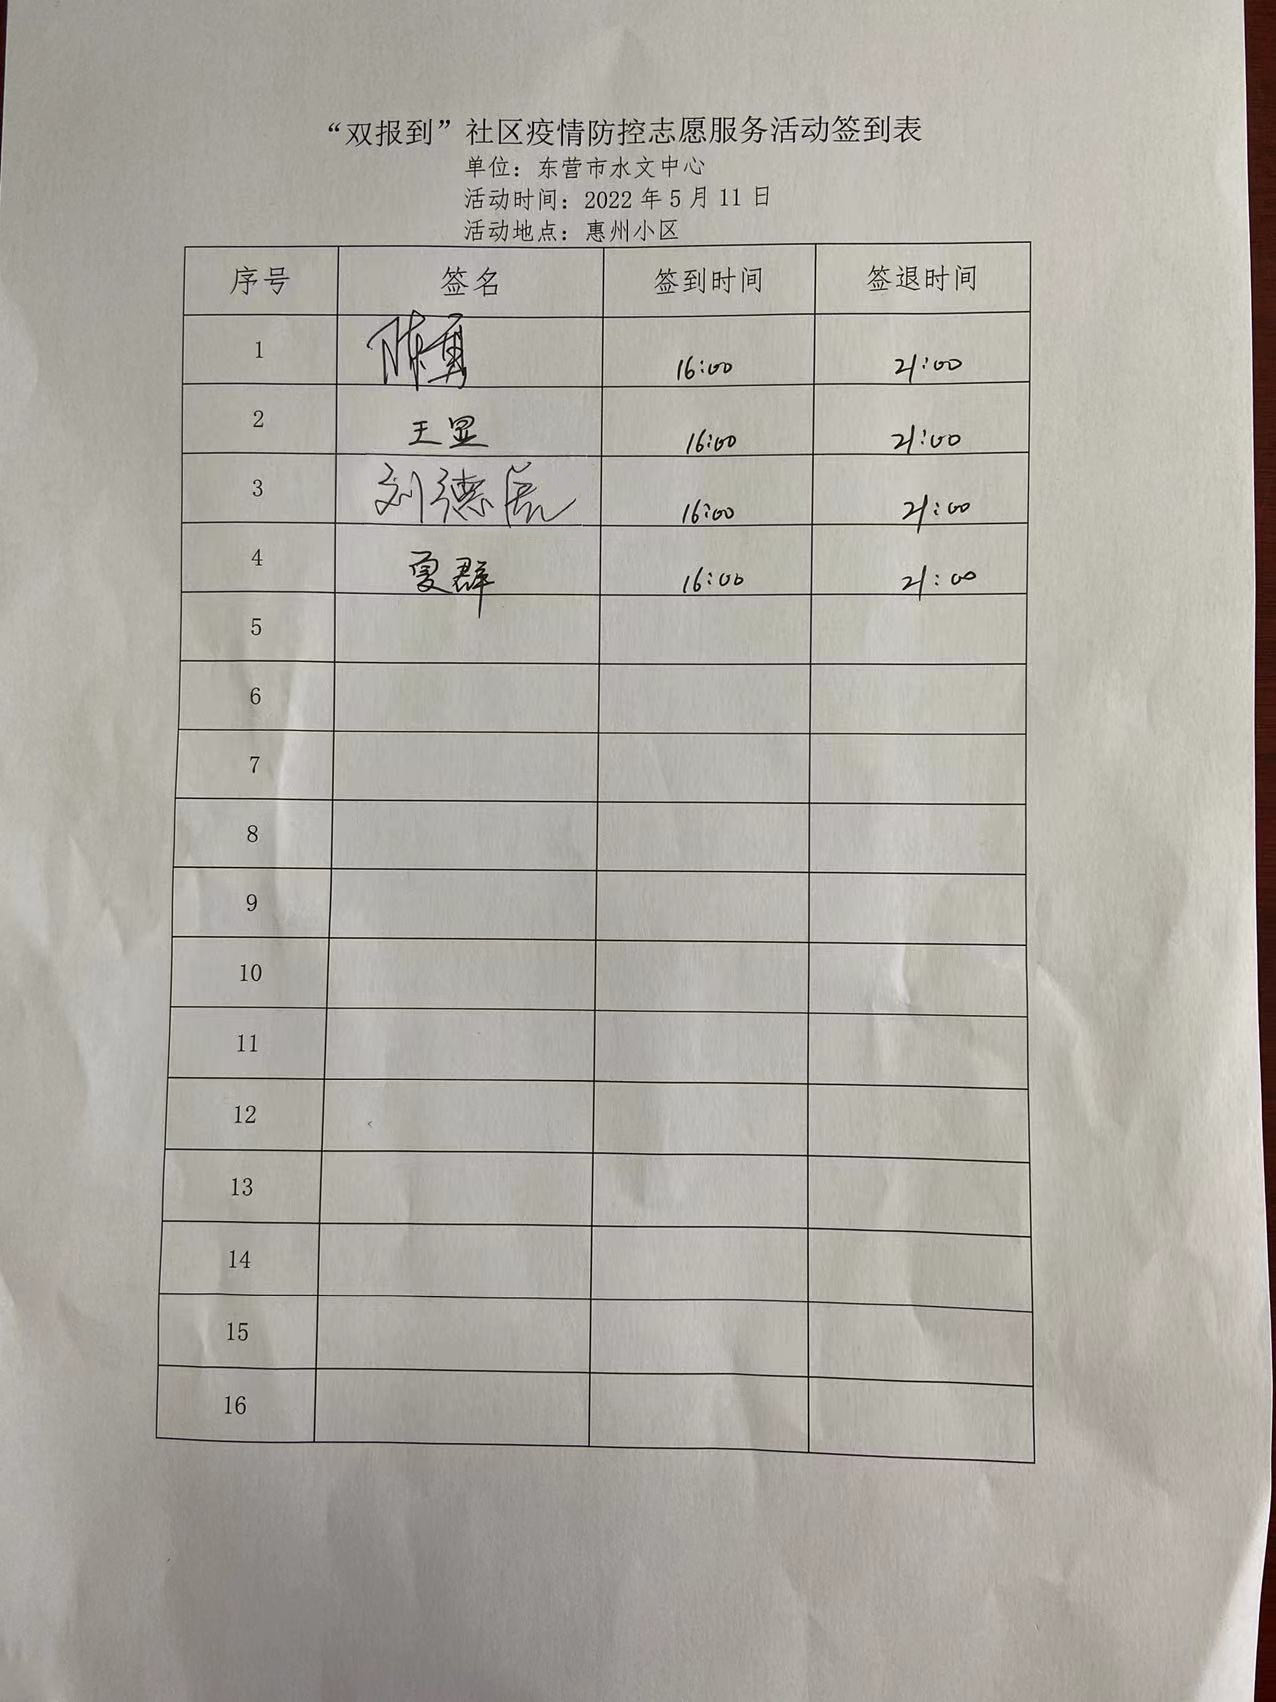 “双报到”社区疫情防控志愿服务活动签到表
单位：东营市水文中心
活动时间：2022 年 5 月 11 日
活动地点：惠州小区
序号 签名 签到时间 签退时间
1 陈勇 16:00 21:00
2 王显 16:00 21:00
3 刘德 16:00 21:00
4 夏群 16:00 21:00
5
6
7
8
9
10
11
12
13
14
15
16